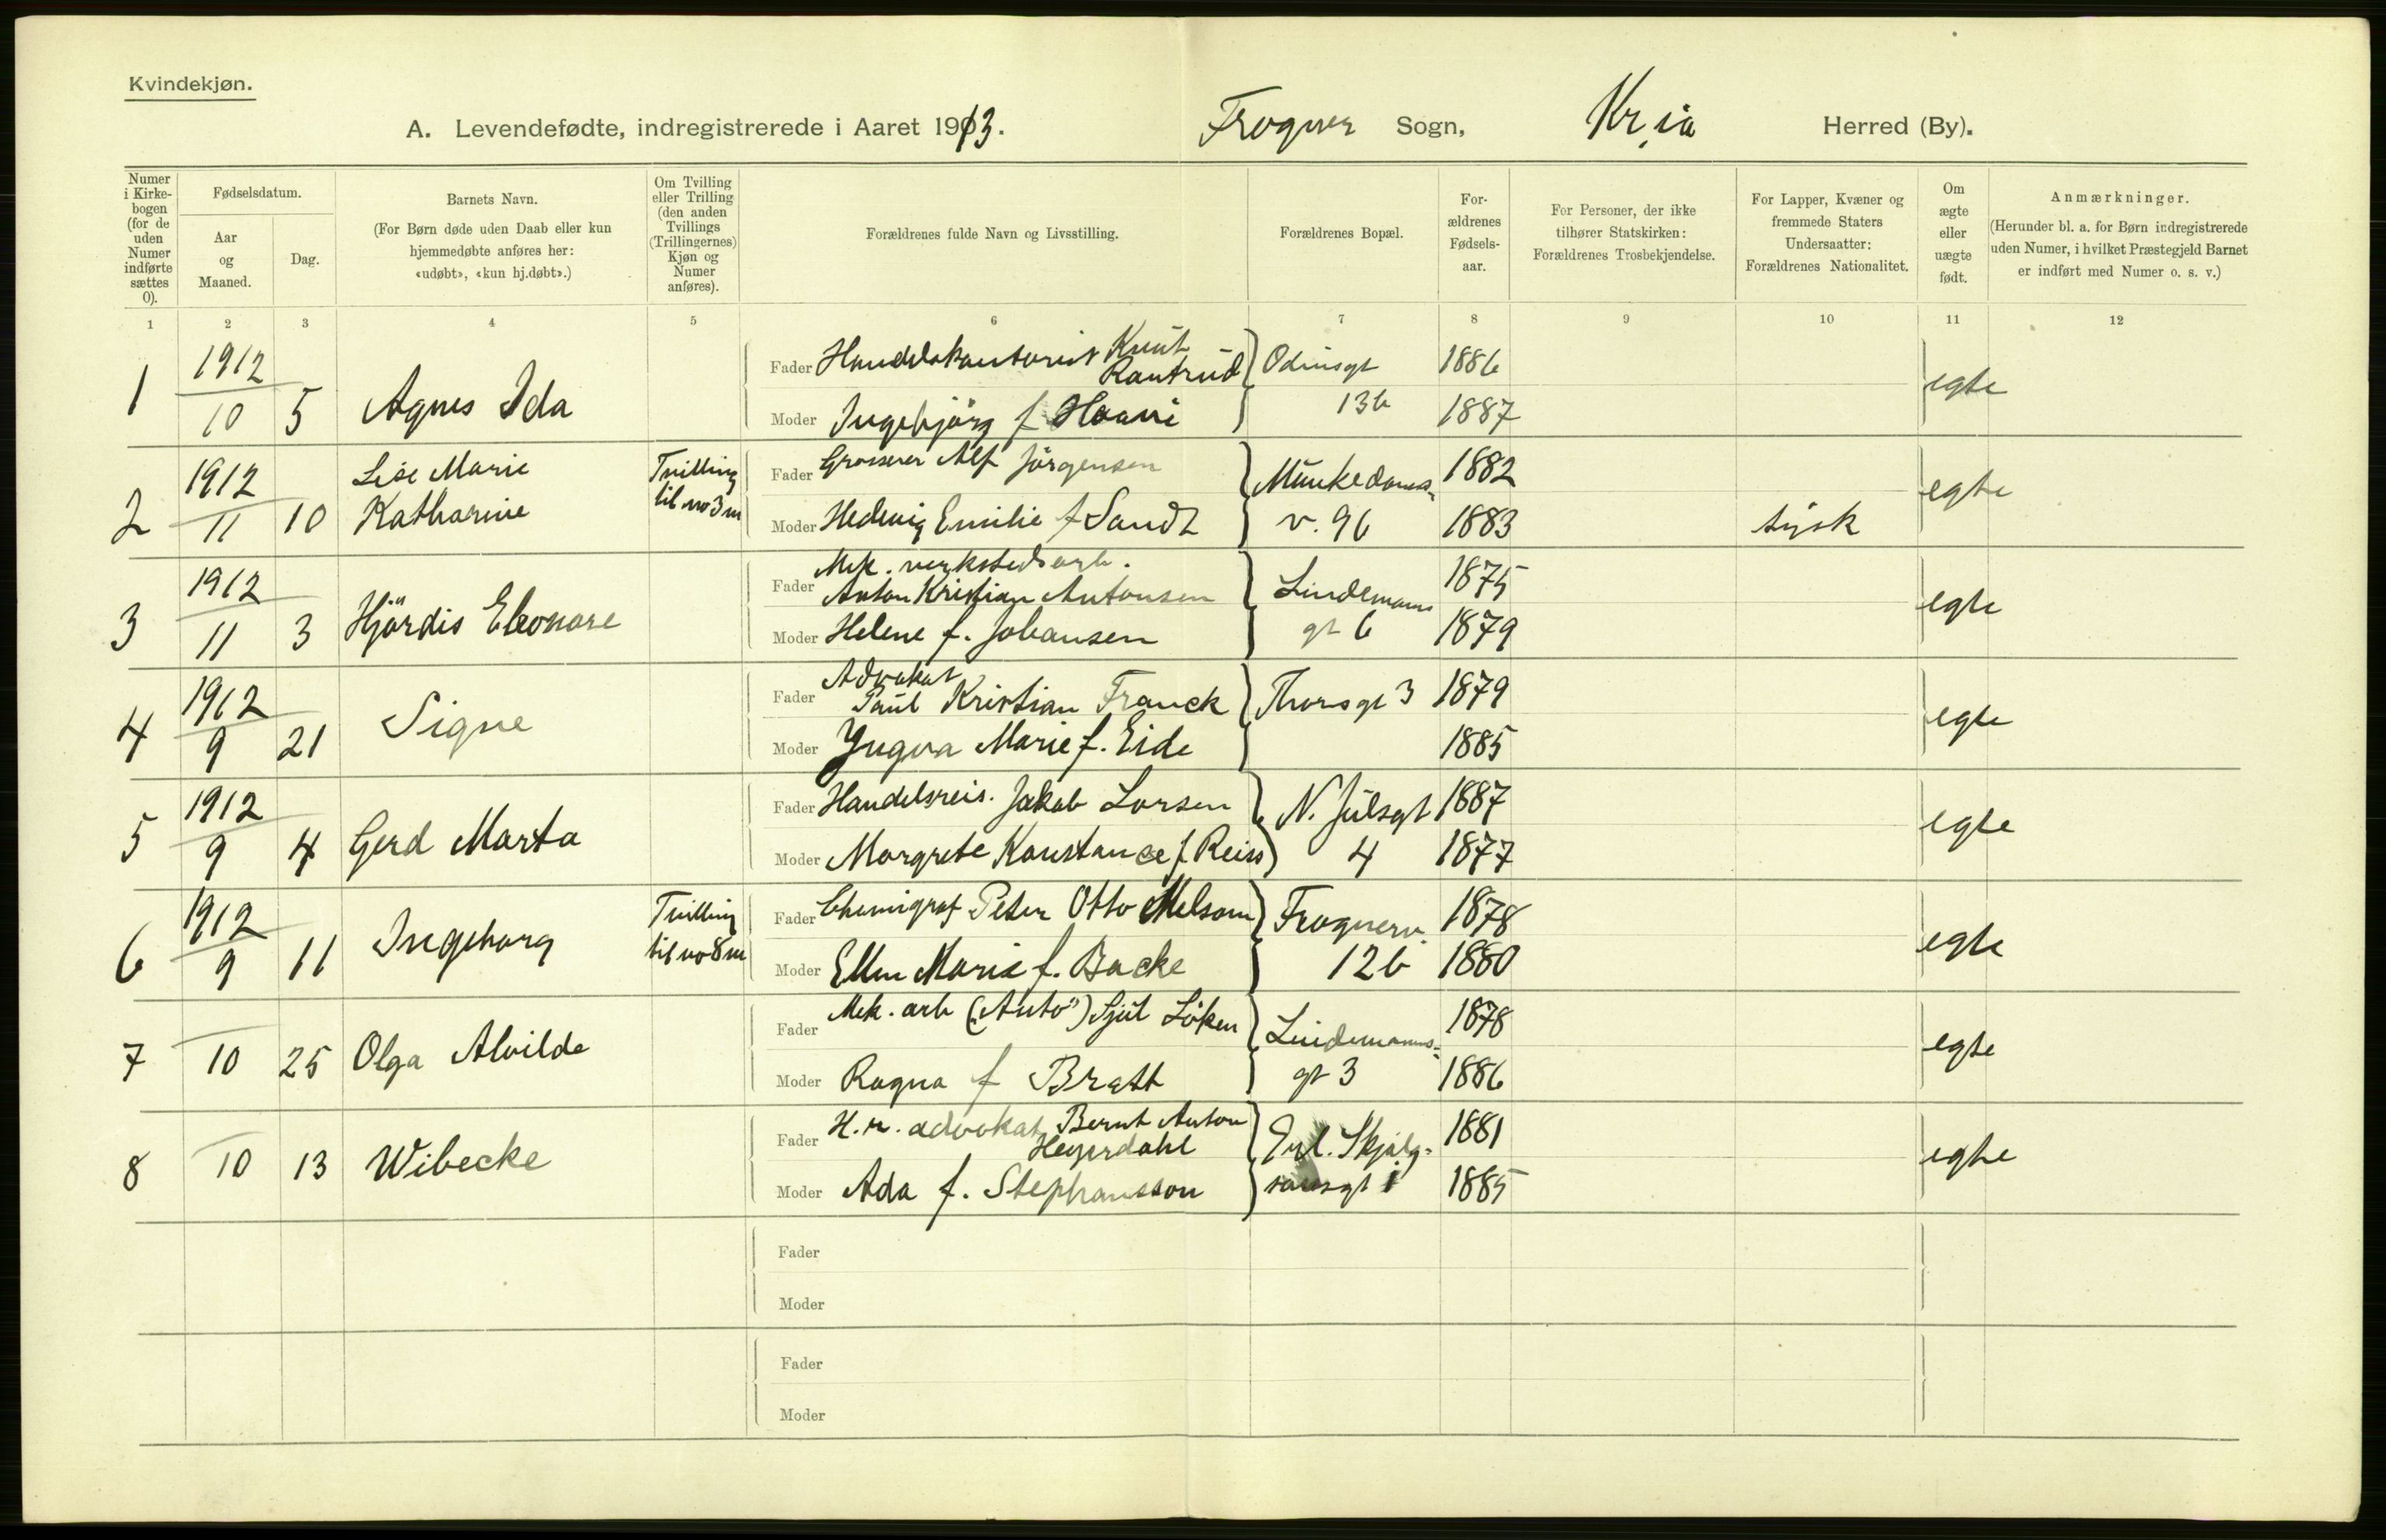 Kvindekjøn.
A. Levendefødte, indregistrerede i Aaret 1913. Frogner Sogn, Kr.ia Herred (By).
Numer i Kirkebogen (for de uden Numer indførte sættes 0).
Fødselsdatum.
Aar og Maaned.
Dag.
Barnets Navn.
(For Børn døde uden Daab eller kun hjemmedøbte anføres her: «udøbt», «kun hj.døbt».)
Om Tvilling eller Trilling (den anden Tvillings (Trillingernes) Kjøn og Numer anføres).
Forældrenes fulde Navn og Livsstilling.
Forældrenes Bopæl.
For-ældrenes Fødsels-aar.
For Personer, der ikke tilhører Statskirken: Forældrenes Trosbekjendelse.
For Lapper, Kvæner og fremmede Staters Undersaatter: Forældrenes Nationalitet.
Om ægte eller uægte født.
Anmærkninger.
(Herunder bl. a. for Børn indregistrerede uden Numer, i hvilket Præstegjeld Barnet er indført med Numer o. s. v.)
1 2 3 4 5 6 7 8 9 10 11 12
1 1912 10 5 Agnes Ida
Fader Handelskontorist Knut Rantrud Odinsgt 1886
Moder Ingebjörg f 13b 1887 egte
2 1912 11 10 Lise Marie Katharine Tvilling til no 3 m
Fader Grosserer Alf Jörgensen Munkedams- 1882
Moder Hedevig Emilie f Sandt v. 96 1883 tysk egte
3 1912 11 3 Hjördis Eleonore
Fader Mek. verkstedsarb. Anton Kristian Antonsen Lindemans 1875
Moder Helene f. Johansen gt 6 1879 egte
4 1912 9 21 Signe
Fader Advokat Paul Kristian Franck Thorsgt 3 1879
Moder Yngva Marie f. Eide 1885 egte
5 1912 9 4 Gerd Marta
Fader Handelsreis. Jakob Larsen N. Julsgt 1887
Moder Margrete Konstance f Reiss 4 1877 egte
6 1912 9 11 Ingeborg Tvilling til no 8 m
Fader Chemigraf Peter Otto Melsom Frognerv. 1878
Moder Ellen Marie f. Backe 12b 1880 egte
7 10 25 Olga Alvilde
Fader Mek. arb („Auto") Sjul Löken Lindemanns- 1878
Moder Ragna f Bratt gt 3 1886 egte
8 10 13 Wibecke
Fader H.r. advokat Bernt Anton Heyerdahl Erl. Skjalg- 1881
Moder Ada f. Stephansson sønsgt 1 1885 egte
Fader
Moder
Fader
Moder